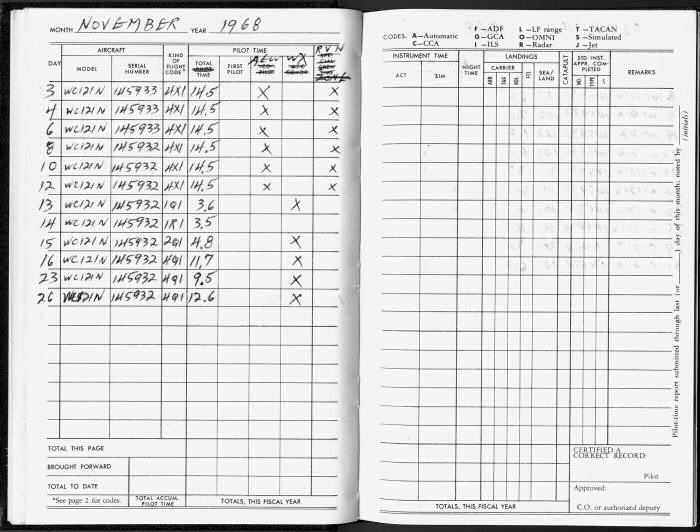 MONTH NOVEMBER YEAR 1968
AIRCRAFT KIND OF FLIGHT CODE* PILOT TIME RVN
DAY MODEL SERIAL NUMBER TOTAL TIME FIRST PILOT AEW WX ZONE
3 WC121N 145933 4X1 14.5 X X
4 WC121N 145933 4X1 14.5 X X
6 WC121N 145933 4X1 14.5 X X
8 WC121N 145932 4X1 14.5 X X
10 WC121N 145932 4X1 14.5 X X
12 WC121N 145932 4X1 14.5 X X
13 WC121N 145932 1Q1 3.6 X
14 WC121N 145932 1R1 3.5
15 WC121N 145932 2Q1 4.8 X
16 WC121N 145932 4Q1 11.7 X
23 WC121N 145932 4Q1 9.5 X
26 WC121N 145932 4Q1 12.6 X
TOTAL THIS PAGE
BROUGHT FORWARD
TOTAL TO DATE
*See page 2 for codes. TOTAL ACCUM. PILOT TIME TOTALS, THIS FISCAL YEAR
CODES: A—Automatic F—ADF L—LF range T—TACAN
C—CCA G—GCA O—OMNI S—Simulated
I—ILS R—Radar J—Jet
INSTRUMENT TIME NIGHT TIME LANDINGS CATAPULT STD INST. APPR. COMPLETED REMARKS
ACT SIM CARRIER ARR T&G BOL FCL SEA/LAND NO. TYPE S
Pilot-time report submitted through last (or ____) day of this month; noted by ____ (initials)
CERTIFIED A CORRECT RECORD:
Pilot
Approved:
TOTALS, THIS FISCAL YEAR C.O. or authorized deputy